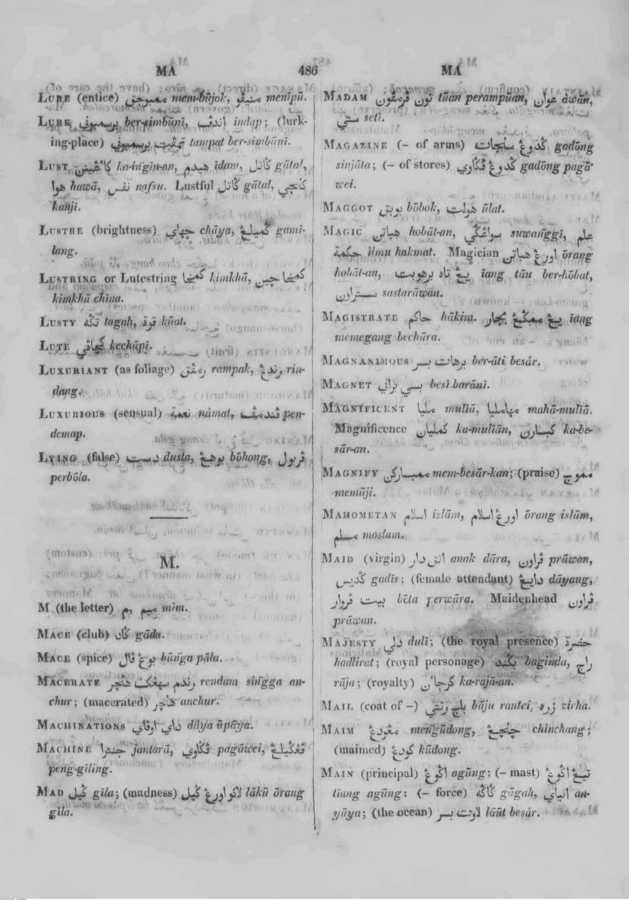 MA
486
MA
LURE (entice) ممبوجق mem-būjok, منيڤو menīpū.
LURE برسمبوني ber-simbūnī, اندڤ indap; (lurk-
ing-place) تمڤت برسمبوني tampat ber-simbūnī.
LUST ka-ingin-an, هيدم īdam, ڬاتل gātal,
هوا hawā, نفس nafsu. Lustful ڬاتل gātal, ڬنجي
kanji.
LUSTRE (brightness) چهاي chāya, ڬميلڠ gamī-
lang.
LUSTRING or Lutestring كمخا kimkhā, كمخا چين
kimkhā chīna.
LUSTY تڬه tagah, قوة kūat.
LUTE كچاڤي kechāpī.
LUXURIANT (as foliage) رمڤق rampak, رندڠ rin-
dang.
LUXURIOUS (sensual) نعمة nāmat, ڤندمڤ pen-
demap.
LYING (false) دست dusta, بوهڠ bōhong, ڤربول
perbōla.
M.
M (the letter) ميم mīm.
MACE (club) ڬاد gāda.
MACE (spice) بوڠ ڤال būnga pāla.
MACERATE رندم سهڠڬ هنچر rendam shīgga an-
chur; (macerated) هنچر anchur.
MACHINATIONS داي اوڤاي dāya ūpāya.
MACHINE جنترا jantarā, ڤڬاوي pagāwei, ڤڠڬيلڠ
peng-gīling.
MAD ڬيل gīla; (madness) لاكو اورڠ ڬيل lākū ōrang
gīla.
MADAM تون ڤرمڤون tūan perampūan, عوان awān,
ستي setī.
MAGAZINE (– of arms) ڬدوڠ سنجات gadōng
sinjāta; (– of stores) ڬدوڠ ڤڬاوي gadōng pagā-
wei.
MAGGOT بوبق būbok, هولت ūlat.
MAGIC هباتن hobāt-an, سواڠڬي suwanggī, علم
حكمة ilmu hakmat. Magician اورڠ هباتن ōrang
hobāt-an, يڠ تاه برهوبت iang tāu ber-hōbat,
سستراون sastarāwan.
MAGISTRATE حاكم hākim, يڠ ممڬڠ بچار iang
memegang bechāra.
MAGNANIMOUS برهات بسر ber-āti besār.
MAGNET بسي براني besī barānī.
MAGNIFICENT مليا muliā, مهامليا mahā-muliā.
Magnificence كمليان ka-muliān, كبسارن ka-be-
sār-an.
MAGNIFY ممبسركن mem-besār-kan; (praise) مموج
memūjī.
MAHOMETAN اسلام islām, اورڠ اسلام ōrang islām,
مسلم moslam.
MAID (virgin) انق دار anak dāra, ڤراون prāwan,
ڬديس gadis; (female attendant) دايڠ dāyang,
بيت ڤروار bēta perwāra. Maidenhead ڤراون
prāwan.
MAJESTY دلي dulī; (the royal presence) حضرة
hadlirat; (royal personage) بڬند baginda, راج
rāja; (royalty) كرجاان ka-rajā-an.
MAIL (coat of –) باج رنتي bāju rantei, زره zirha.
MAIM مڠودڠ mengūdong, چنچڠ chinchang;
(maimed) كودڠ kūdong.
MAIN (principal) اڬوڠ agūng; (– mast) تيڠ اڬوڠ
tīang agūng: (– force) ڬاڬه gāgah, انياي an-
yāya; (the ocean) لاوت بسر lāūt besār.